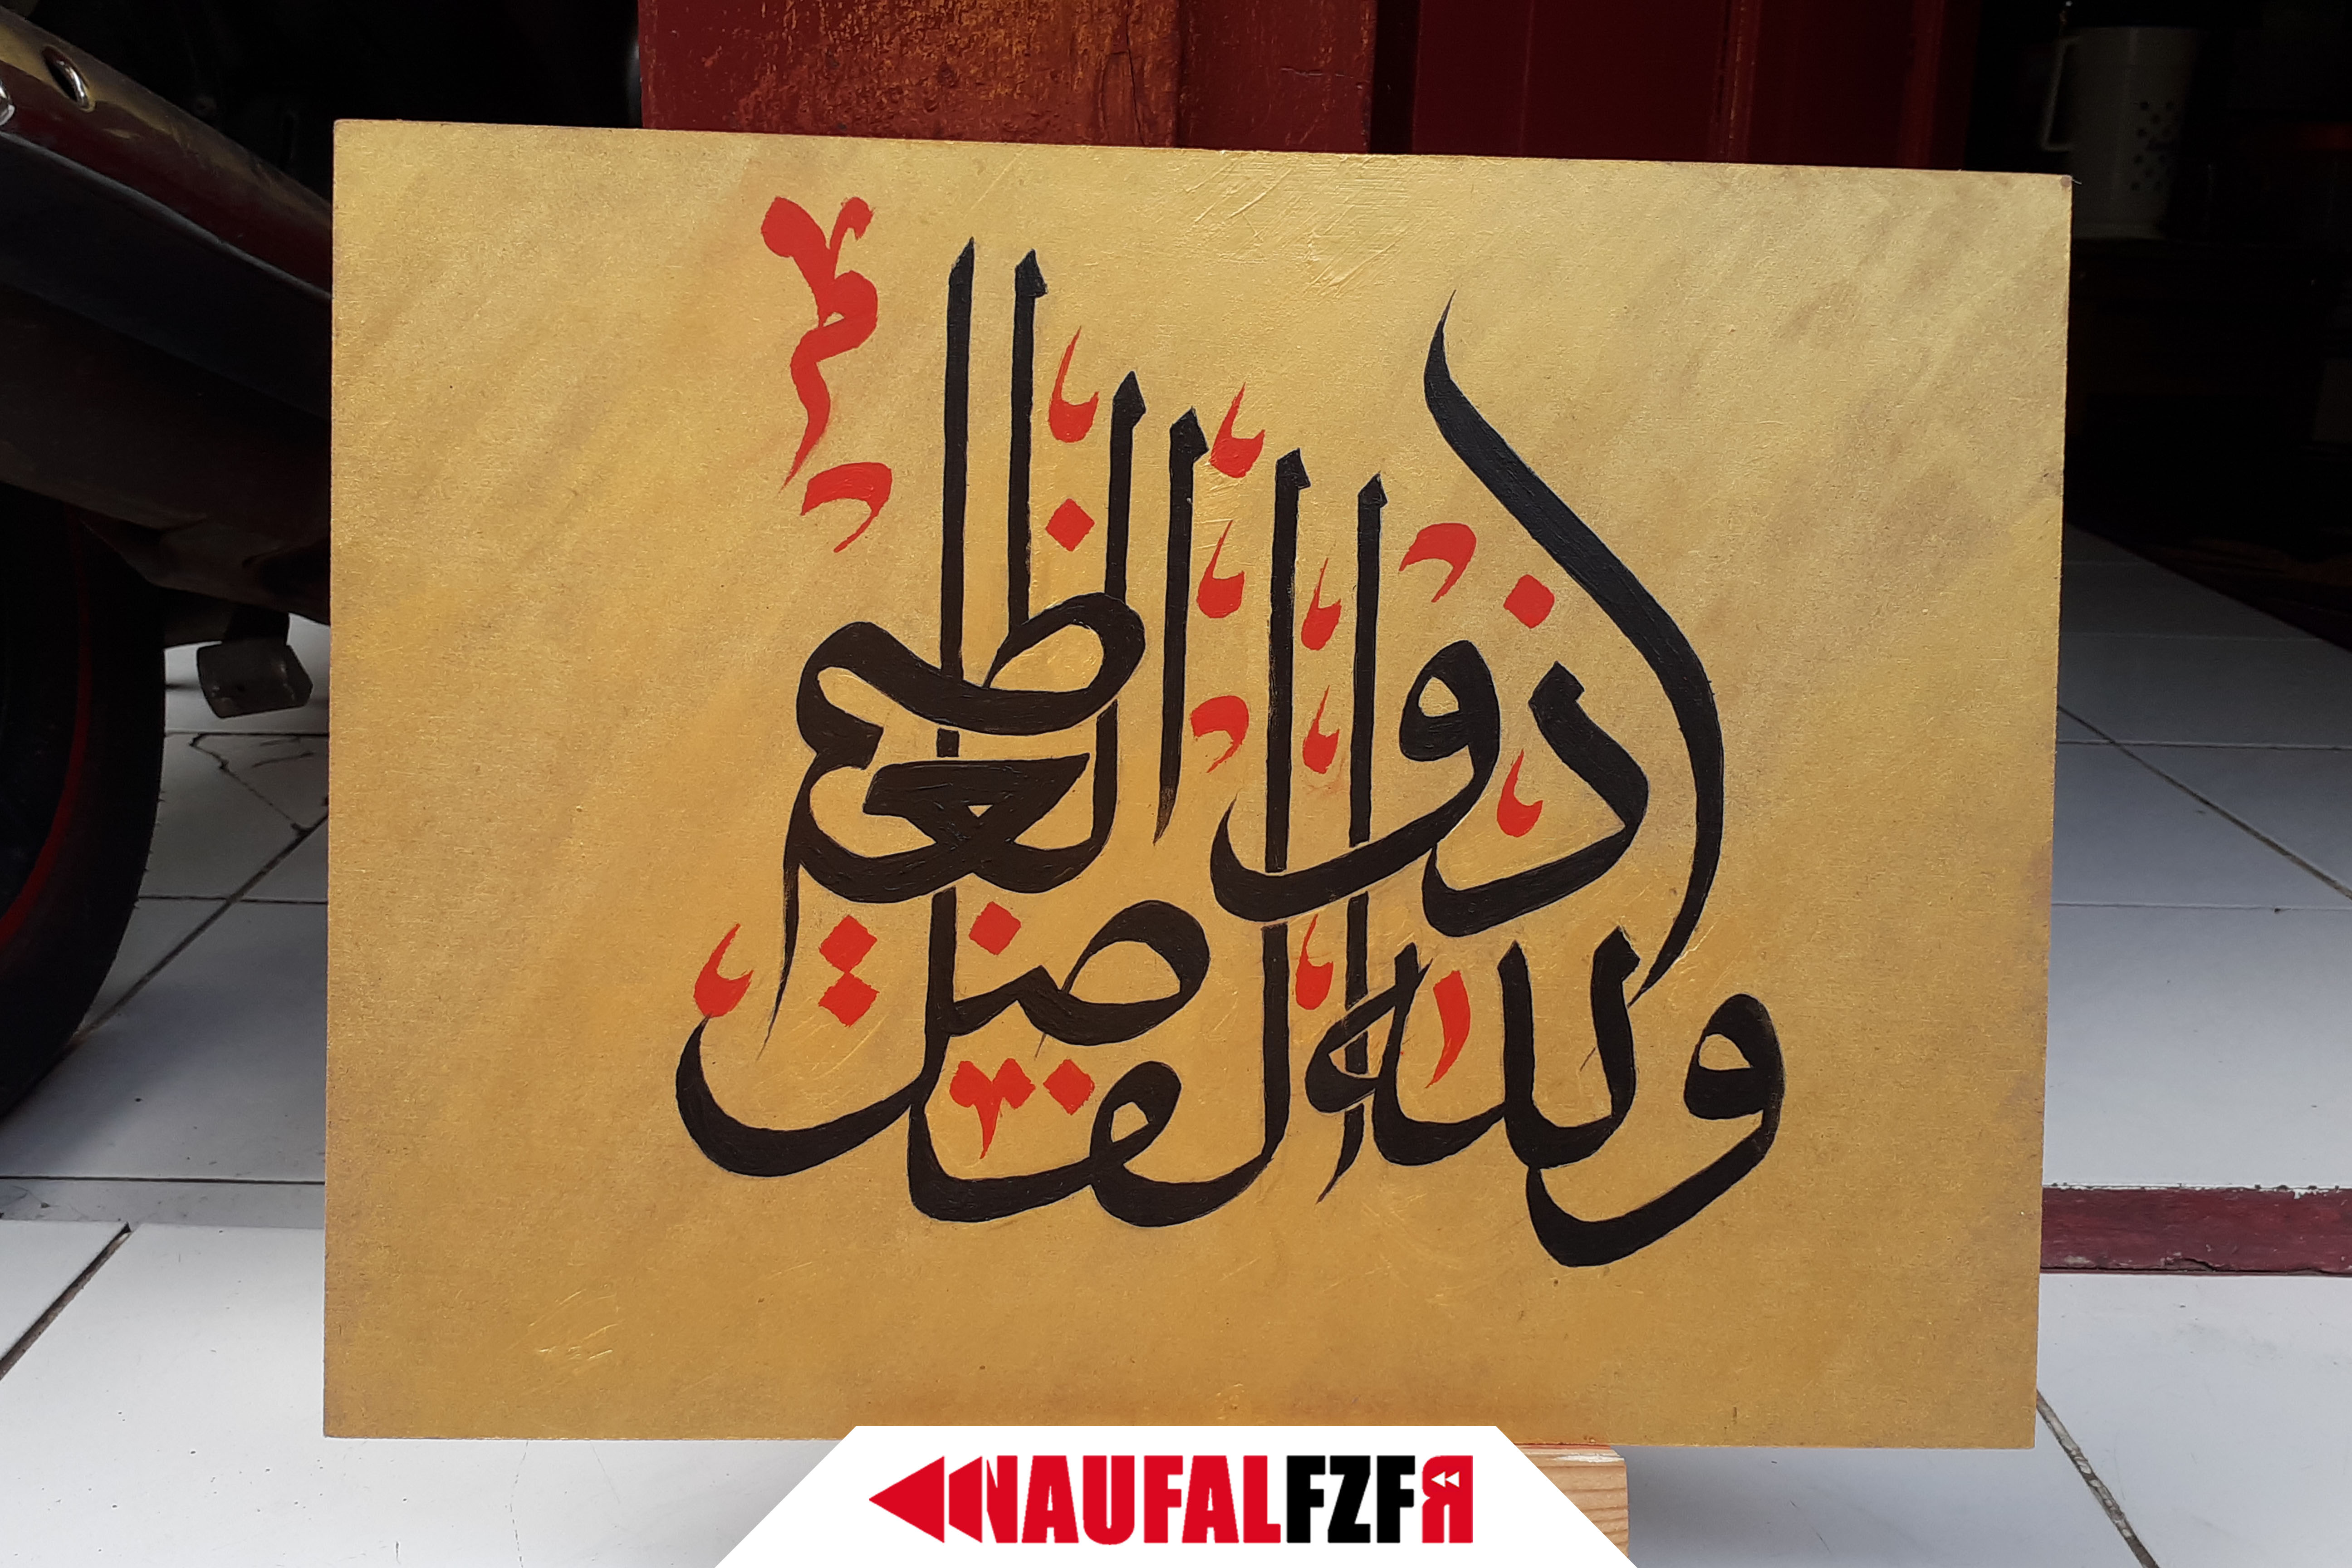 والله ذو الفضل العظيم
NAUFALFZFR